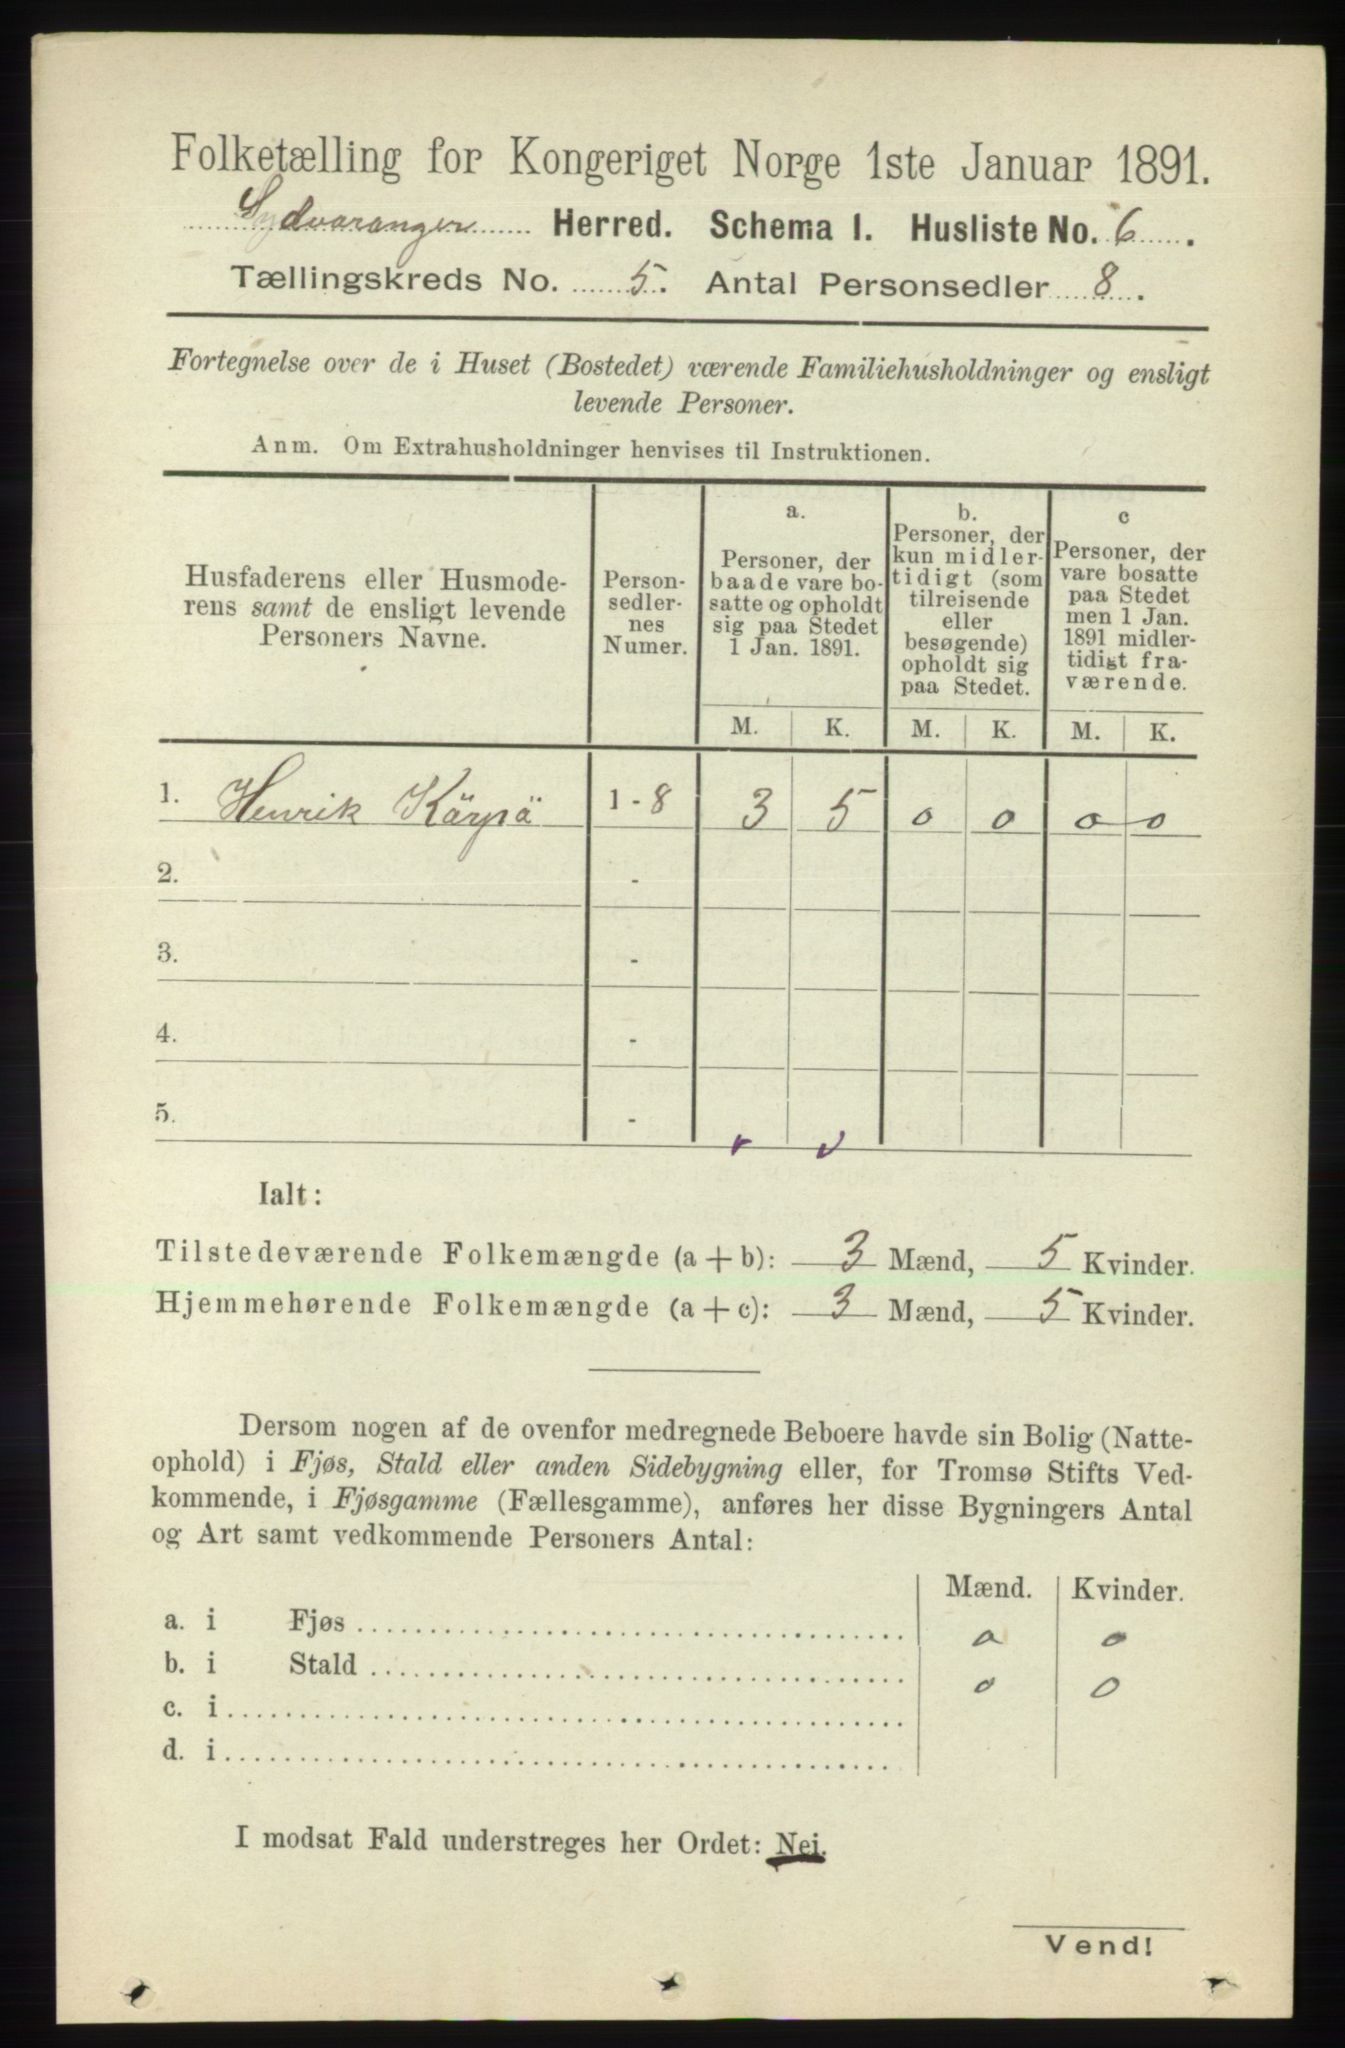 Folketælling for Kongeriget Norge 1ste Januar 1891.
Sydvaranger Herred. Schema I. Husliste No. 6.
Tællingskreds No. 5. Antal Personsedler 8.
Fortegnelse over de i Huset (Bostedet) værende Familiehusholdninger og ensligt
levende Personer.
Anm. Om Extrahusholdninger henvises til Instruktionen.
Husfaderens eller Husmode-
rens samt de ensligt levende
Personers Navne.
Person-
sedler-
nes
Numer.
a.
Personer, der
baade vare bo-
satte og opholdt
sig paa Stedet
1 Jan. 1891.
b.
Personer, der
kun midler-
tidigt (som
tilreisende
eller
besøgende)
opholdt sig
paa Stedet.
c
Personer, der
vare bosatte
paa Stedet
men 1 Jan.
1891 midler-
tidigt fra-
værende.
M. K. M. K. M. K.
1. Henrik Kärpä 1 - 8 3 5 0 0 0 0
2. -
3. -
4. -
5. -
Ialt:
Tilstedeværende Folkemængde (a + b): 3 Mænd, 5 Kvinder.
Hjemmehørende Folkemængde (a + c): 3 Mænd, 5 Kvinder.
Dersom nogen af de ovenfor medregnede Beboere havde sin Bolig (Natte-
ophold) i Fjøs, Stald eller anden Sidebygning eller, for Tromsø Stifts Ved-
kommende, i Fjøsgamme (Fællesgamme), anføres her disse Bygningers Antal
og Art samt vedkommende Personers Antal:
Mænd. Kvinder.
a. i Fjøs 0 0
b. i Stald 0 0
c. i
d. i
I modsat Fald understreges her Ordet: Nei.
Vend!